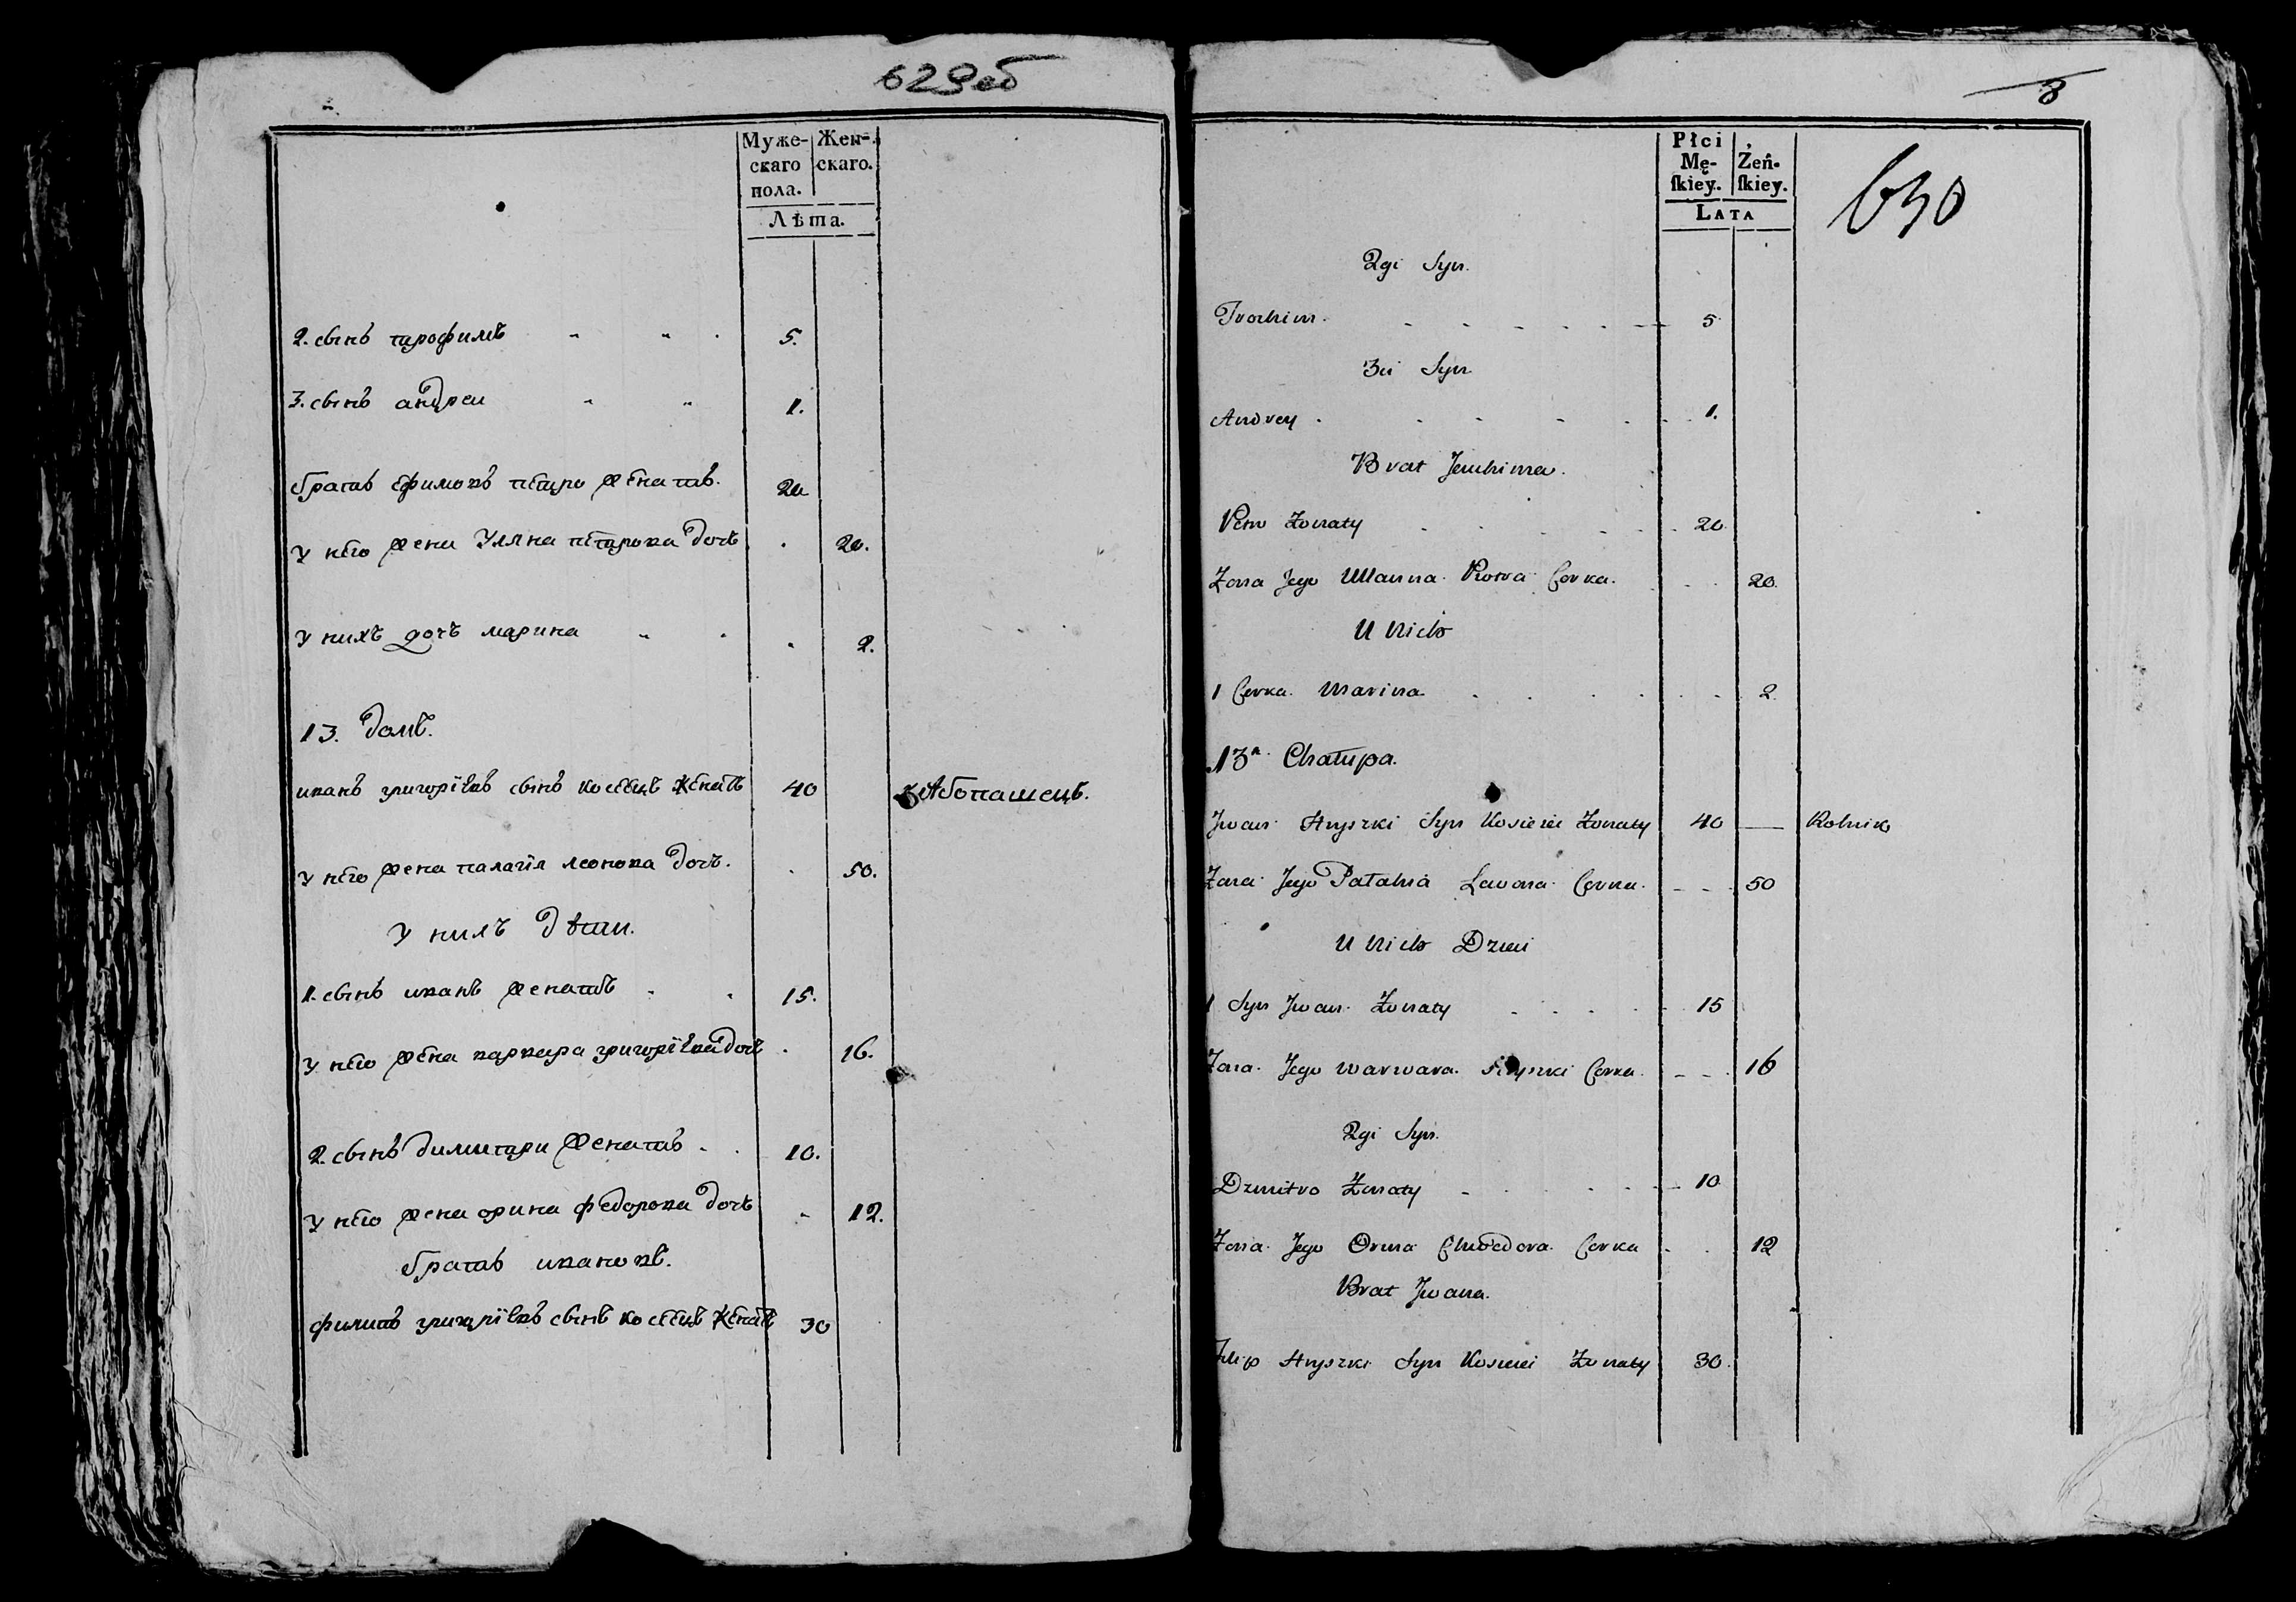 629об
Муже-
скаго
пола.
Жен-
скаго.
Лѣта.
2. сынъ трофимъ 5.
3. сынъ андреи 1.
братъ ефимовъ петро женатъ. 20
у него жена Уляна петрова дочъ 20.
у нихъ дочъ марина 2.
13. домъ.
иванъ григоріевъ сынъ косеецъ женатъ 40 хлѣбопашецъ.
у него жена палагія леонова дочъ. 50.
у нихъ дѣти.
1. сынъ иванъ женатъ 15.
у него жена варвара григоріева дочъ 16.
2. сынъ димитри женатъ 10.
у него жена орина федорова дочъ 12.
братъ ивановъ.
филипъ григоріевъ сынъ косеецъ женатъ 30
3
Płci
Mę-
ſkiey.
Żeń-
ſkiey.
LATA
630
2gi Syn.
Trochim. 5
3ci Syn
Andrey 1.
Brat Jeuchima.
Petro Żonaty 20
Żona Jego Ullanna Piotra Corka. 20
U Nich
1 Corka Marina 2
13a Chałupa.
Jwan Hryszki Syn Kosieiei Żonaty 40 — Rolnik
Żona Jego Pałahia Lavona Corka. 50
U Nich Dzieci
1 Syn Jwan Żonaty 15
Żona Jego Warwara Hryszki Corka 16
2gi Syn.
Dzmitro Żonaty 10
Żona Jego Orina Chwedora Corka 12
Brat Jwana.
Filip Hryszki Syn Kosieiei Żonaty 30